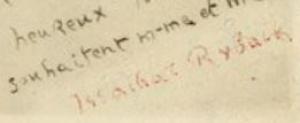 heureux
souhaitent m-me et m
Issachar Ryback